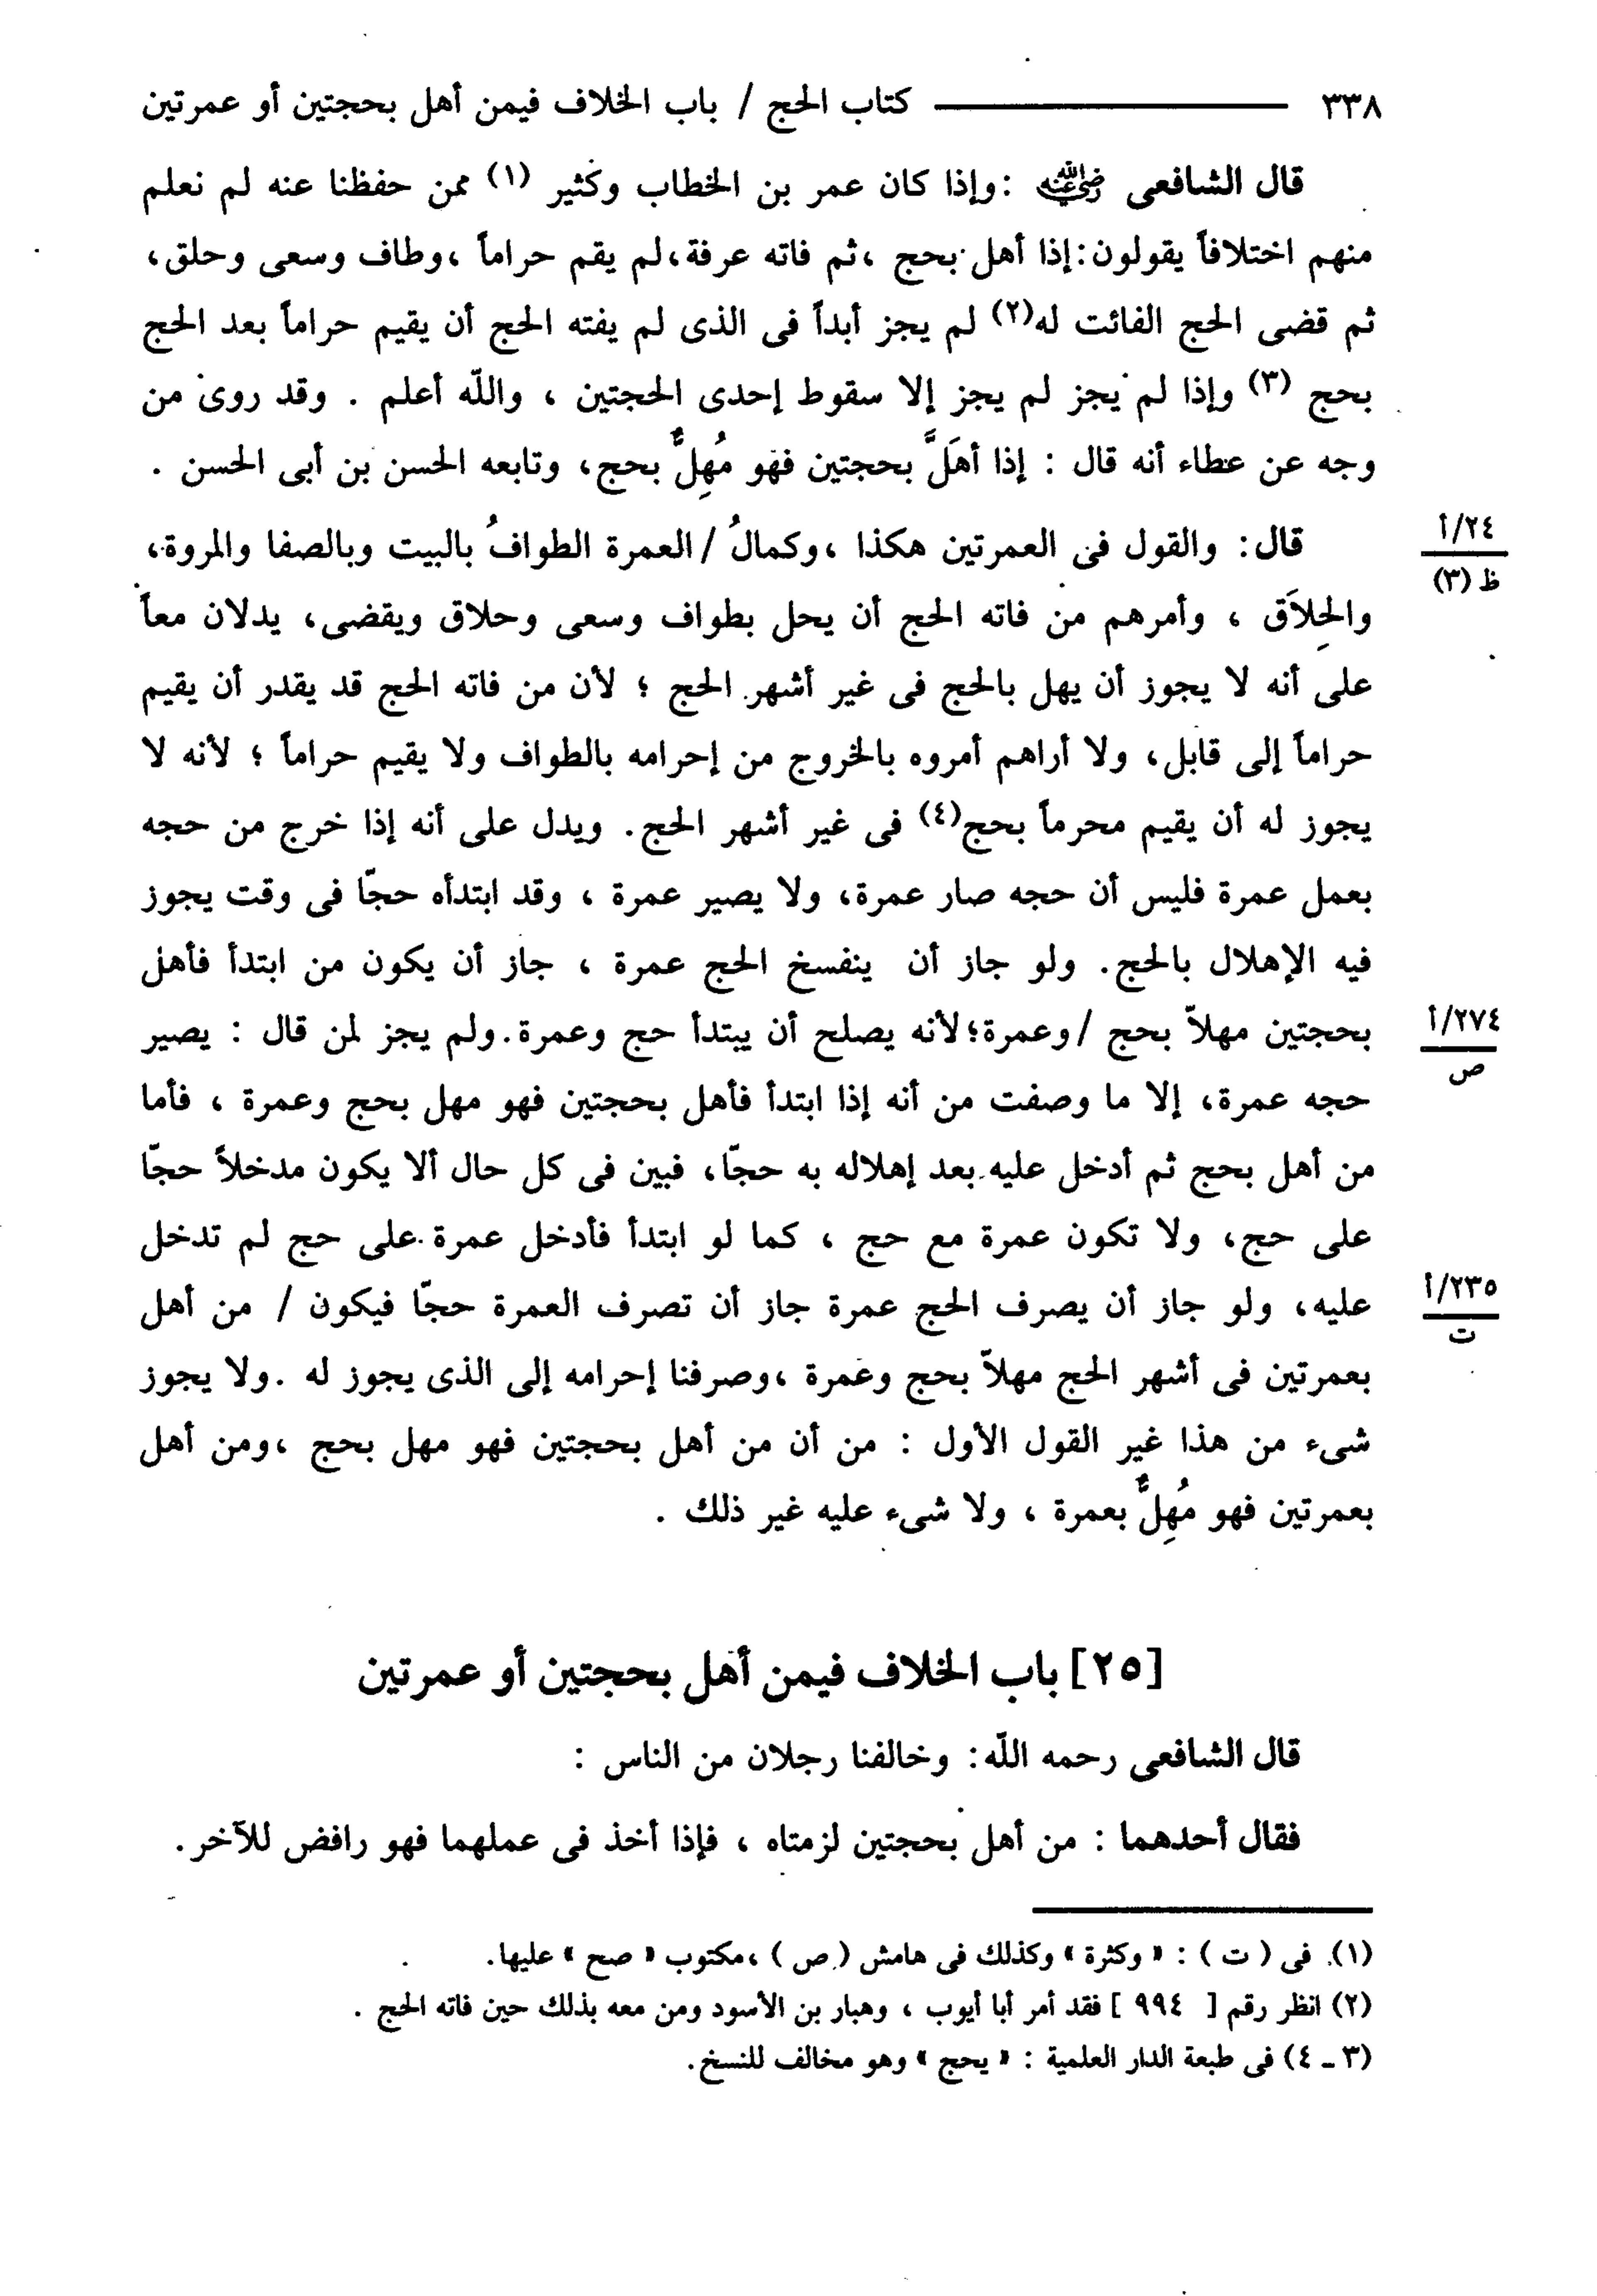 ٣٣٨ كتاب الحج / باب الخلاف فيمن أهل بحجتين أو عمرتين
قال الشافعى رضي الله عنه : وإذا كان عمر بن الخطاب وكثير (١) ممن حفظنا عنه لم نعلم
منهم اختلافاً يقولون : إذا أهل بحج ، ثم فاته عرفة ، لم يقم حراماً ، وطاف وسعى وحلق ،
ثم قضى الحج الفائت له (٢) لم يجز أبداً فى الذى لم يفته الحج أن يقيم حراماً بعد الحج
بحج (٣) وإذا لم يجز لم يجز إلا سقوط إحدى الحجتين ، والله أعلم . وقد روى من
وجه عن عطاء أنه قال : إذا أهَلَّ بحجتين فهو مُهِلٌّ بحج ، وتابعه الحسن بن أبى الحسن .
قال : والقول فى العمرتين هكذا ، وكمالُ / العمرة الطوافُ بالبيت وبالصفا والمروة ،
٢٤/أ
ظ (٣)
والحِلاَق ، وأمرهم من فاته الحج أن يحل بطواف وسعى وحلاق ويقضى ، يدلان معاً
على أنه لا يجوز أن يهل بالحج فى غير أشهر الحج ؛ لأن من فاته الحج قد يقدر أن يقيم
حراماً إلى قابل ، ولا أراهم أمروه بالخروج من إحرامه بالطواف ولا يقيم حراماً ؛ لأنه لا
يجوز له أن يقيم محرماً بحج (٤) فى غير أشهر الحج . ويدل على أنه إذا خرج من حجه
بعمل عمرة فليس أن حجه صار عمرة ، ولا يصير عمرة ، وقد ابتدأه حجّا فى وقت يجوز
فيه الإهلال بالحج . ولو جاز أن ينفسخ الحج عمرة ، جاز أن يكون من ابتدأ فأهل
بحجتين مهلاّ بحج / وعمرة ؛ لأنه يصلح أن يبتدأ حج وعمرة . ولم يجز لمن قال : يصير
٢٧٤/أ
ص
حجه عمرة ، إلا ما وصفت من أنه إذا ابتدأ فأهل بحجتين فهو مهل بحج وعمرة ، فأما
من أهل بحج ثم أدخل عليه بعد إهلاله به حجّا ، فبين فى كل حال ألا يكون مدخلاً حجّا
على حج ، ولا تكون عمرة مع حج ، كما لو ابتدأ فأدخل عمرة على حج لم تدخل
عليه ، ولو جاز أن يصرف الحج عمرة جاز أن تصرف العمرة حجّا فيكون / من أهل
٢٣٥/أ
ت
بعمرتين فى أشهر الحج مهلاّ بحج وعمرة ، وصرفنا إحرامه إلى الذى يجوز له . ولا يجوز
شىء من هذا غير القول الأول : من أن من أهل بحجتين فهو مهل بحج ، ومن أهل
بعمرتين فهو مُهِلٌّ بعمرة ، ولا شىء عليه غير ذلك .
[٢٥] باب الخلاف فيمن أهل بحجتين أو عمرتين
قال الشافعى رحمه الله : وخالفنا رجلان من الناس :
فقال أحدهما : من أهل بحجتين لزمتاه ، فإذا أخذ فى عملهما فهو رافض للآخر .
(١) فى ( ت ) : « وكثرة » وكذلك فى هامش ( ص ) ، مكتوب « صح » عليها .
(٢) انظر رقم [ ٩٩٤ ] فقد أمر أبا أيوب ، وهبار بن الأسود ومن معه بذلك حين فاته الحج .
(٣ ـ ٤) فى طبعة الدار العلمية : « يحج » وهو مخالف للنسخ .